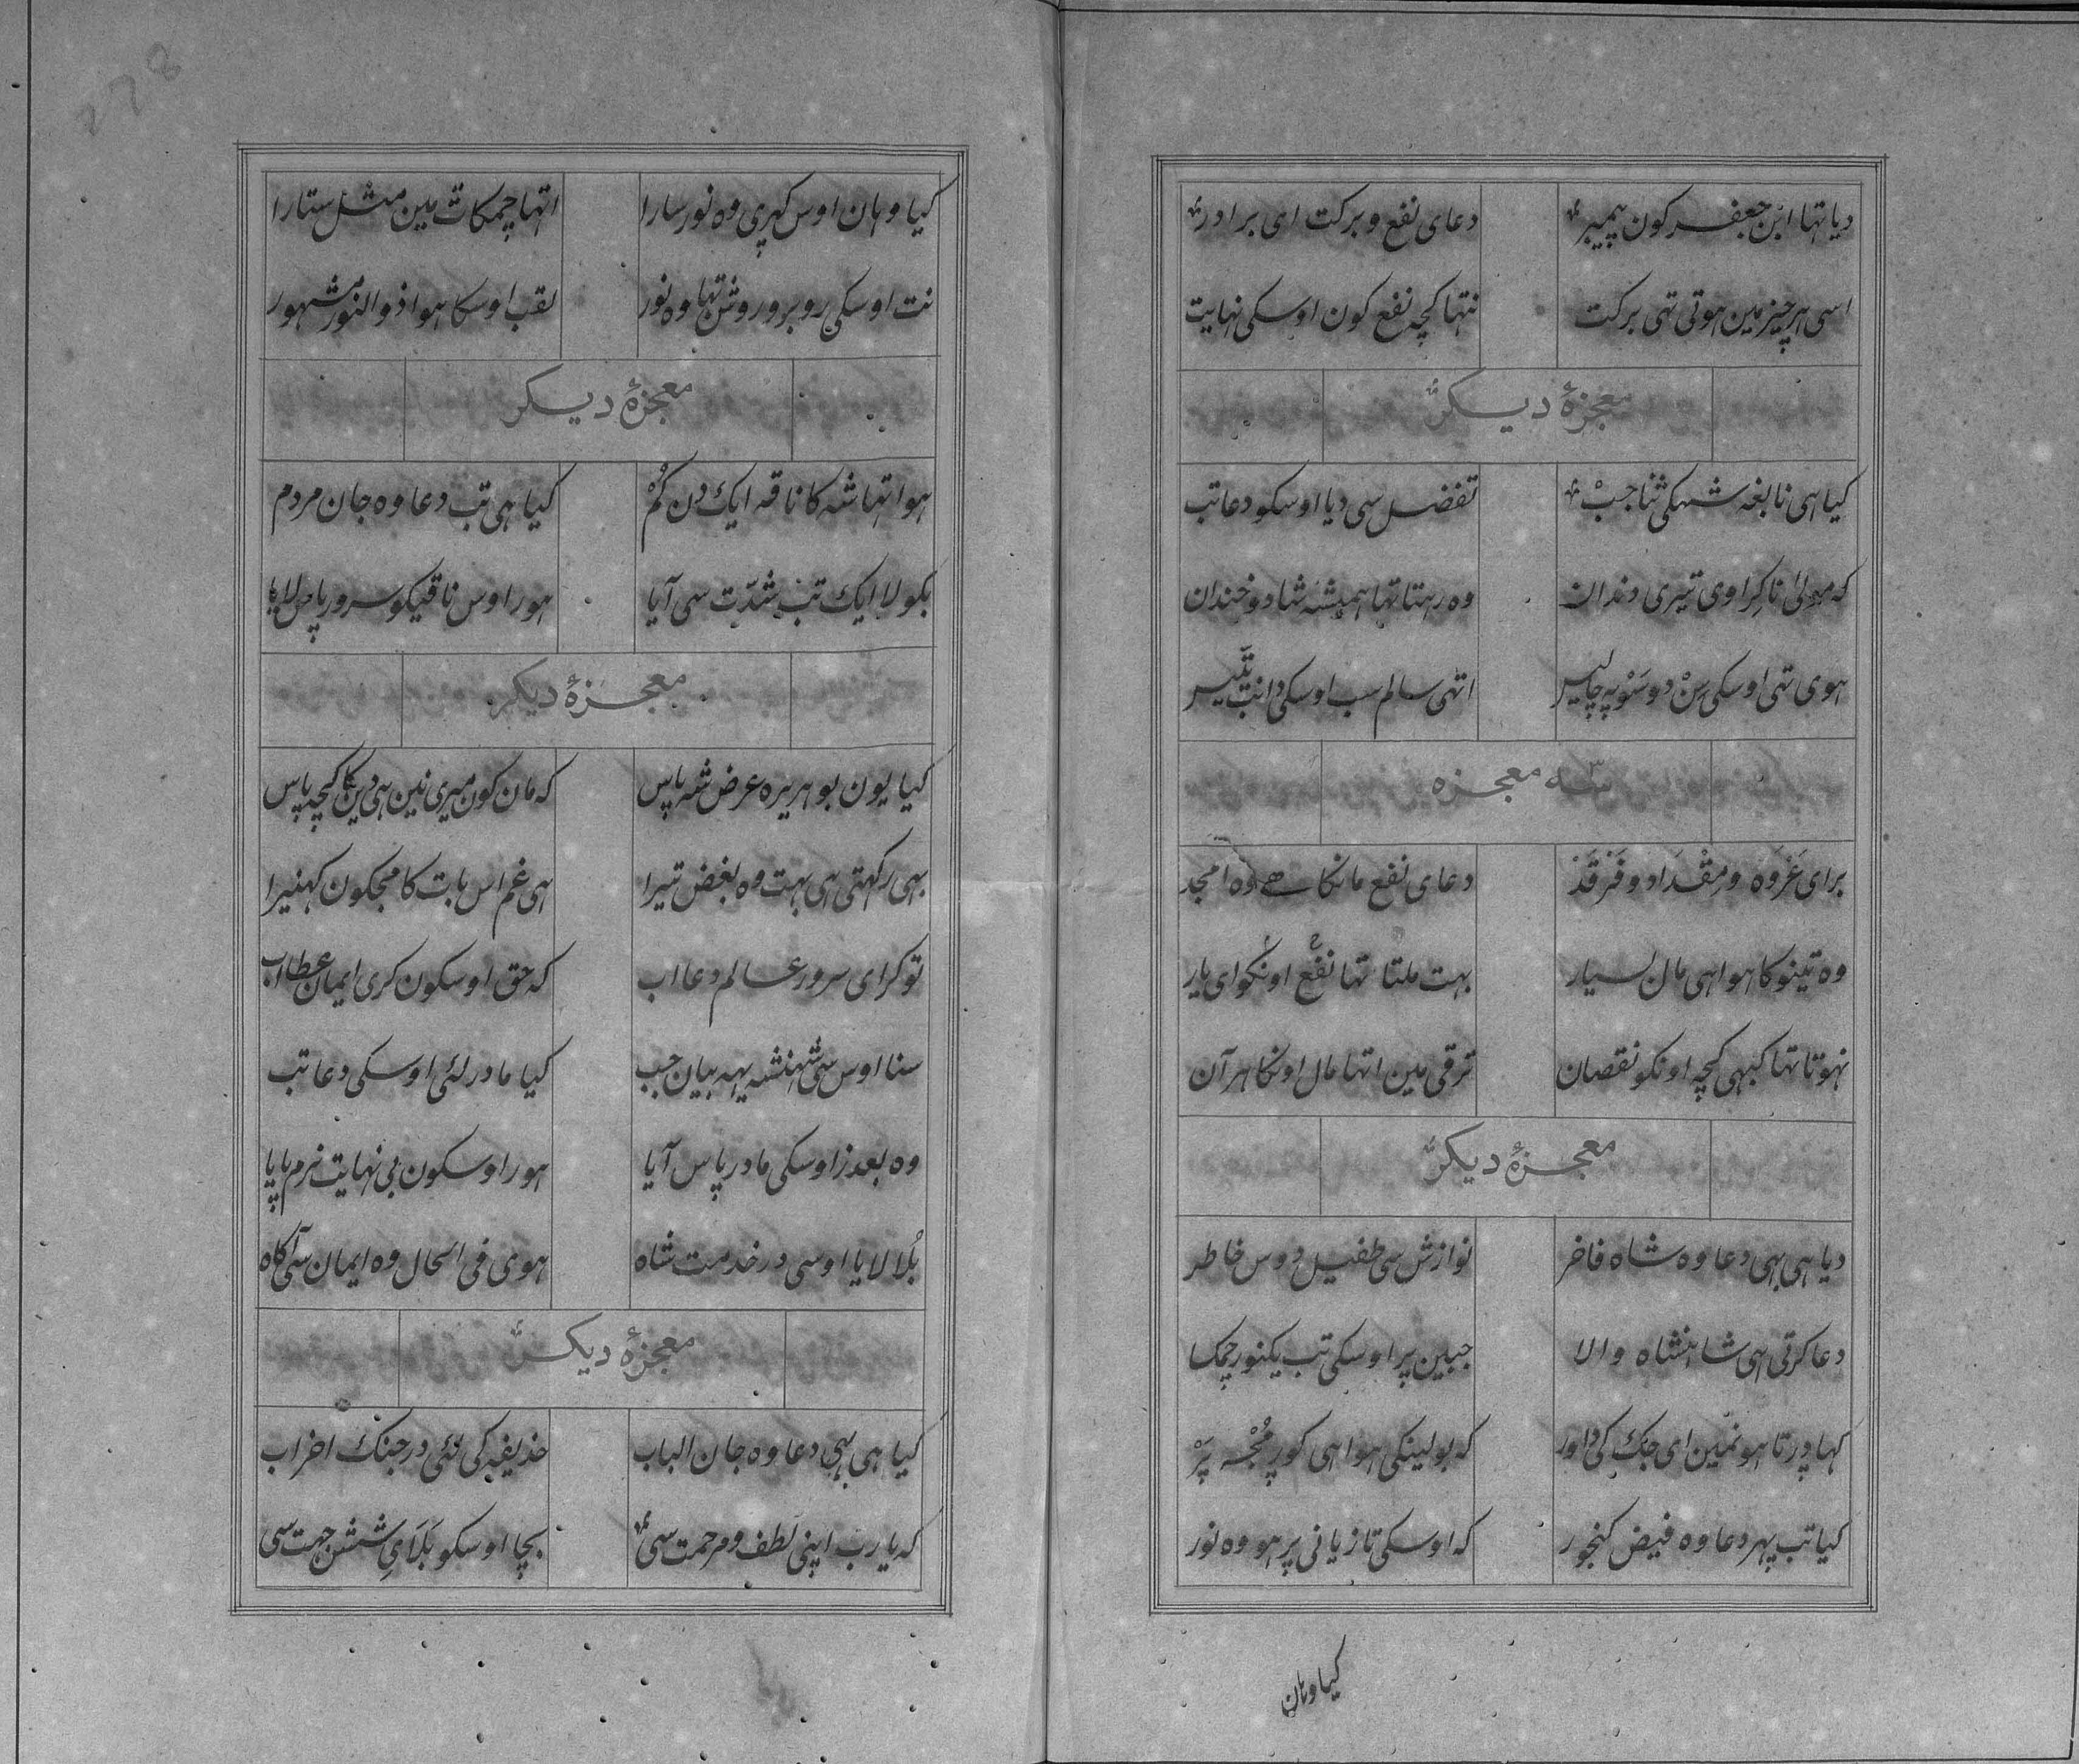 دیا تہا ابن جعفر کون پیمبر دعای نفع و برکت ای برادر
اسی ہر چیز مین ہوتی تہی برکت نتہا کچہ نفع کون اوسکی نہایت
معجزۂ دیکر
کیا ہی نابغہ شہکی ثنا جب تفضل سی دیا اوسکو دعا تب
کہ مولیٰ نا کراوی تیری دندان وہ رہتا تہا ہمیشہ شاد و خندان
ہوی تہی اوسکی سن دو سو پہ چالیس اتہی سالم سب اوسکی دانت بتیس
سہ معجزہ
برای عروہ و مقداد و فرقد دعای نفع مانکا ہے وہ امجد
وہ تینو کا ہوا ہی مال بسیار بہت ملتا تہا نفع اونکو ای یار
نہوتا تہا کبہی کچہ اونکو نقصان ترقی مین اتہا مال اونکا ہر آن
معجزۂ دیکر
دیا ہی بہی دعا وہ شاہ فاخر نوازش سی طفیل دوس خاطر
دعا کرتی ہی شاہنشاہ والا جبین پر اوسکی تب یکنور چمکا
کہا درتا ہو نمین ای جک کی داور کہ بولینکی ہوا ہی کور مجہ پر
کیا تب پہر دعا وہ فیض کنجور کہ اوسکی تازیانی پر ہو وہ نور
کیا وہان
کیا وہان اوس کہری وہ نور سارا اتہا چمکات مین مثل ستارا
نت اوسکی روبرو روشن تہا وہ نور لقب اوسکا ہوا ذو النور مشہور
معجزۂ دیکر
ہوا تہا شہ کا ناقہ ایک دن کم کیا ہی تب دعا وہ جان مردم
بکولا ایک تب شدت سی آیا ہور اوس ناقیکو سرور پاس لایا
معجزۂ دیکر
کیا یون بو ہریرہ عرض شہ پاس کہ مان کون میری نین ہی دین کا کچہ پاس
بہی رکہتی ہی بہت وہ بغض تیرا ہی غم اس بات کا مجکون کہنیرا
تو کر ای سرور عالم دعا اب کہ حق اوسکون کری ایمان عطا اب
سنا اوس سی شہنشہ یہہ بیان جب کیا مادر لئی اوسکی دعا تب
وہ بعد از اوسکی مادر پاس آیا ہور اوسکون بی نہایت نرم پایا
بلا لایا اوسی در خدمت شاہ ہوی فی الحال وہ ایمان سی آکاہ
معجزۂ دیکر
کیا ہی بہی دعا وہ جان الباب حذیفہ کی لئی در جنک احزاب
کہ یا رب اپنی لطف و مرحمت سی بچا اوسکو بلای شش جہت سی
278